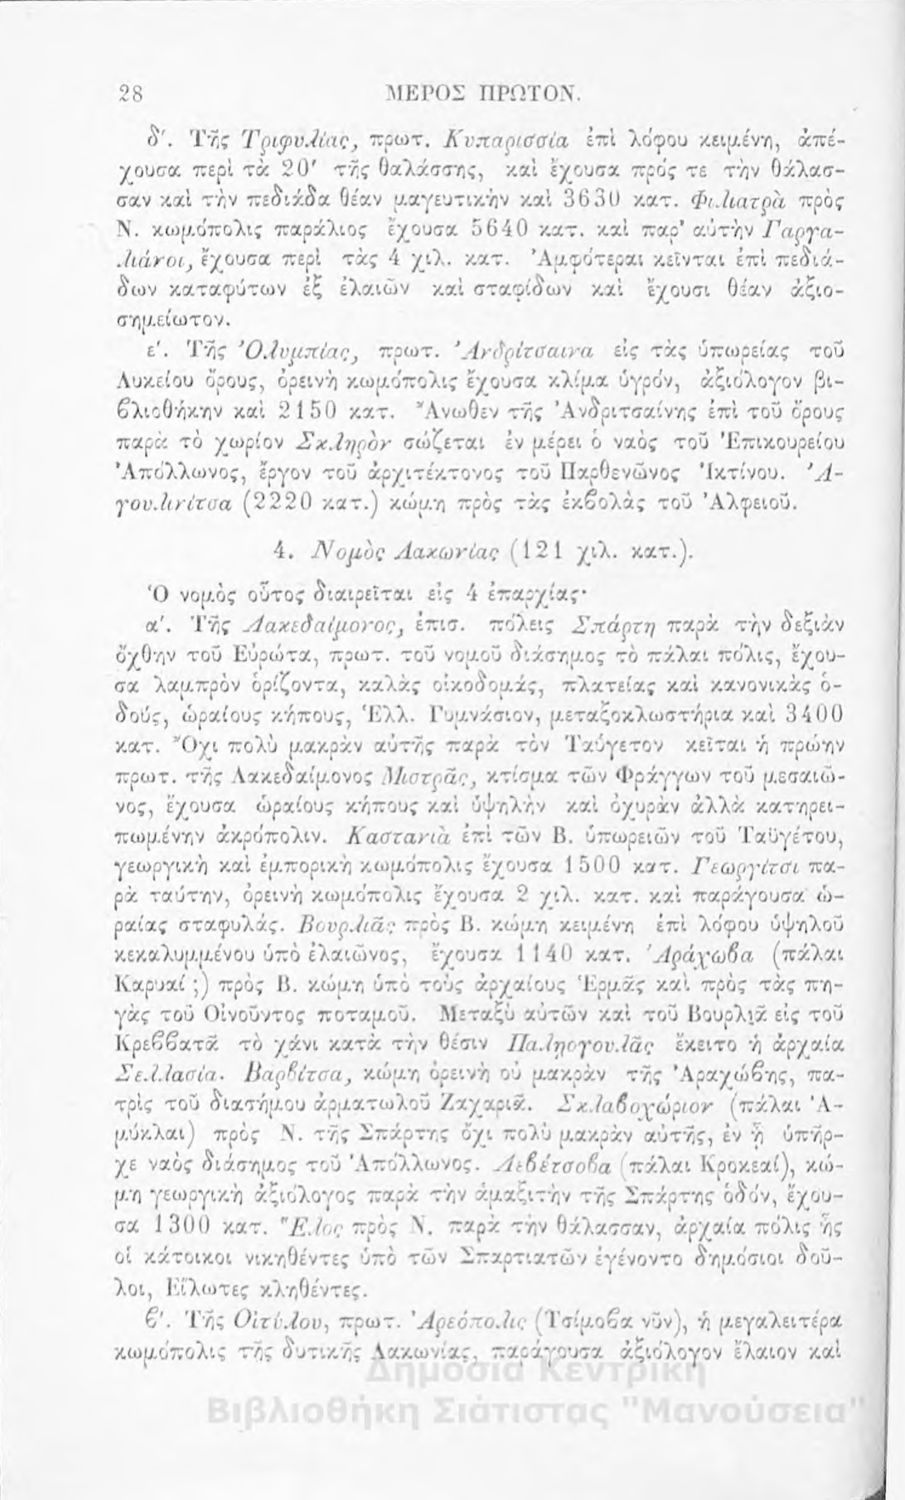 28 ΜΕΡΟΣ ΠΡΩΤΟΝ.
δ'. Τῆς Τριφυλίας, πρωτ. Κυπαρισσία ἐπὶ λόφου κειμένη, ἀπέ-
χουσα περὶ τὰ 20' τῆς θαλάσσης, καὶ ἔχουσα πρός τε τὴν θάλασ-
σαν καὶ τὴν πεδιάδα θέαν μαγευτικὴν καὶ 3630 κατ. Φιλιατρὰ πρὸς
Ν. κωμόπολις παράλιος ἔχουσα 5640 κατ. καὶ παρ' αὐτὴν Γαργα-
λιάνοι, ἔχουσα περὶ τὰς 4 χιλ. κατ. Ἀμφότεραι κεῖνται ἐπὶ πεδιά-
δων καταφύτων ἐξ ἐλαιῶν καὶ σταφίδων καὶ ἔχουσι θέαν ἀξιο-
σημείωτον.
ε'. Τῆς Ὀλυμπίας, πρωτ. Ἀνδρίτσαινα εἰς τὰς ὑπωρείας τοῦ
Λυκείου ὄρους, ὀρεινὴ κωμόπολις ἔχουσα κλίμα ὑγρόν, ἀξιόλογον βι-
ϐλιοθήκην καὶ 2150 κατ. Ἄνωθεν τῆς Ἀνδριτσαίνης ἐπὶ τοῦ ὄρους
παρὰ τὸ χωρίον Σκληρὸν σώζεται ἐν μέρει ὁ ναὸς τοῦ Ἐπικουρείου
Ἀπόλλωνος, ἔργον τοῦ ἀρχιτέκτονος τοῦ Παρθενῶνος Ἰκτίνου. Ἀ-
γουλινίτσα (2220 κατ.) κώμη πρὸς τὰς ἐκϐολὰς τοῦ Ἀλφειοῦ.
4. Νομὸς Λακωνίας (121 χιλ. κατ.).
Ὁ νομὸς οὗτος διαιρεῖται εἰς 4 ἐπαρχίας·
α'. Τῆς Λακεδαίμονος, ἐπισ. πόλεις Σπάρτη παρὰ τὴν δεξιὰν
ὄχθην τοῦ Εὐρώτα, πρωτ. τοῦ νομοῦ διάσημος τὸ πάλαι πόλις, ἔχου-
σα λαμπρὸν ὁρίζοντα, καλὰς οἰκοδομάς, πλατείας καὶ κανονικὰς ὁ-
δούς, ὡραίους κήπους, Ἑλλ. Γυμνάσιον, μεταξοκλωστήρια καὶ 3400
κατ. Ὄχι πολὺ μακρὰν αὐτῆς παρὰ τὸν Ταΰγετον κεῖται ἡ πρώην
πρωτ. τῆς Λακεδαίμονος Μιστρᾶς, κτίσμα τῶν Φράγγων τοῦ μεσαιῶ-
νος, ἔχουσα ὡραίους κήπους καὶ ὑψηλὴν καὶ ὀχυρὰν ἀλλὰ κατηρει-
πωμένην ἀκρόπολιν. Καστανιὰ ἐπὶ τῶν Β. ὑπωρειῶν τοῦ Ταϋγέτου,
γεωργικὴ καὶ ἐμπορικὴ κωμόπολις ἔχουσα 1500 κατ. Γεωργίτσι πα-
ρὰ ταύτην, ὀρεινὴ κωμόπολις ἔχουσα 2 χιλ. κατ. καὶ παράγουσα ὡ-
ραίας σταφυλάς. Βουρλιᾶς πρὸς Β. κώμη κειμένη ἐπὶ λόφου ὑψηλοῦ
κεκαλυμμένου ὑπὸ ἐλαιῶνος, ἔχουσα 1140 κατ. Ἀράχωϐα (πάλαι
Καρυαί ;) πρὸς Β. κώμη ὑπὸ τοὺς ἀρχαίους Ἑρμᾶς καὶ πρὸς τὰς πη-
γὰς τοῦ Οἰνοῦντος ποταμοῦ. Μεταξὺ αὐτῶν καὶ τοῦ Βουρλιᾶ εἰς τοῦ
Κρεϐϐατᾶ τὸ χάνι κατὰ τὴν θέσιν Παληογουλᾶς ἔκειτο ἡ ἀρχαία
Σελλασία. Βαρϐίτσα, κώμη ὀρεινὴ οὐ μακρὰν τῆς Ἀραχώϐης, πα-
τρὶς τοῦ διασήμου ἁρματωλοῦ Ζαχαριᾶ. Σκλαϐοχώριον (πάλαι Ἀ-
μύκλαι) πρὸς Ν. τῆς Σπάρτης ὄχι πολὺ μακρὰν αὐτῆς, ἐν ᾗ ὑπῆρ-
χε ναὸς διάσημος τοῦ Ἀπόλλωνος. Λεϐέτσοϐα (πάλαι Κροκεαί), κώ-
μη γεωργικὴ ἀξιόλογος παρὰ τὴν ἁμαξιτὴν τῆς Σπάρτης ὁδόν, ἔχου-
σα 1300 κατ. Ἕλος πρὸς Ν. παρὰ τὴν θάλασσαν, ἀρχαία πόλις ἧς
οἱ κάτοικοι νικηθέντες ὑπὸ τῶν Σπαρτιατῶν ἐγένοντο δημόσιοι δοῦ-
λοι, Εἵλωτες κληθέντες.
ϐ'. Τῆς Οἰτύλου, πρωτ. Ἀρεόπολις (Τσίμοϐα νῦν), ἡ μεγαλειτέρα
κωμόπολις τῆς δυτικῆς Λακωνίας, παράγουσα ἀξιόλογον ἔλαιον καὶ
Δημόσια Κεντρική
Βιβλιοθήκη Σιάτιστας "Μανούσεια"